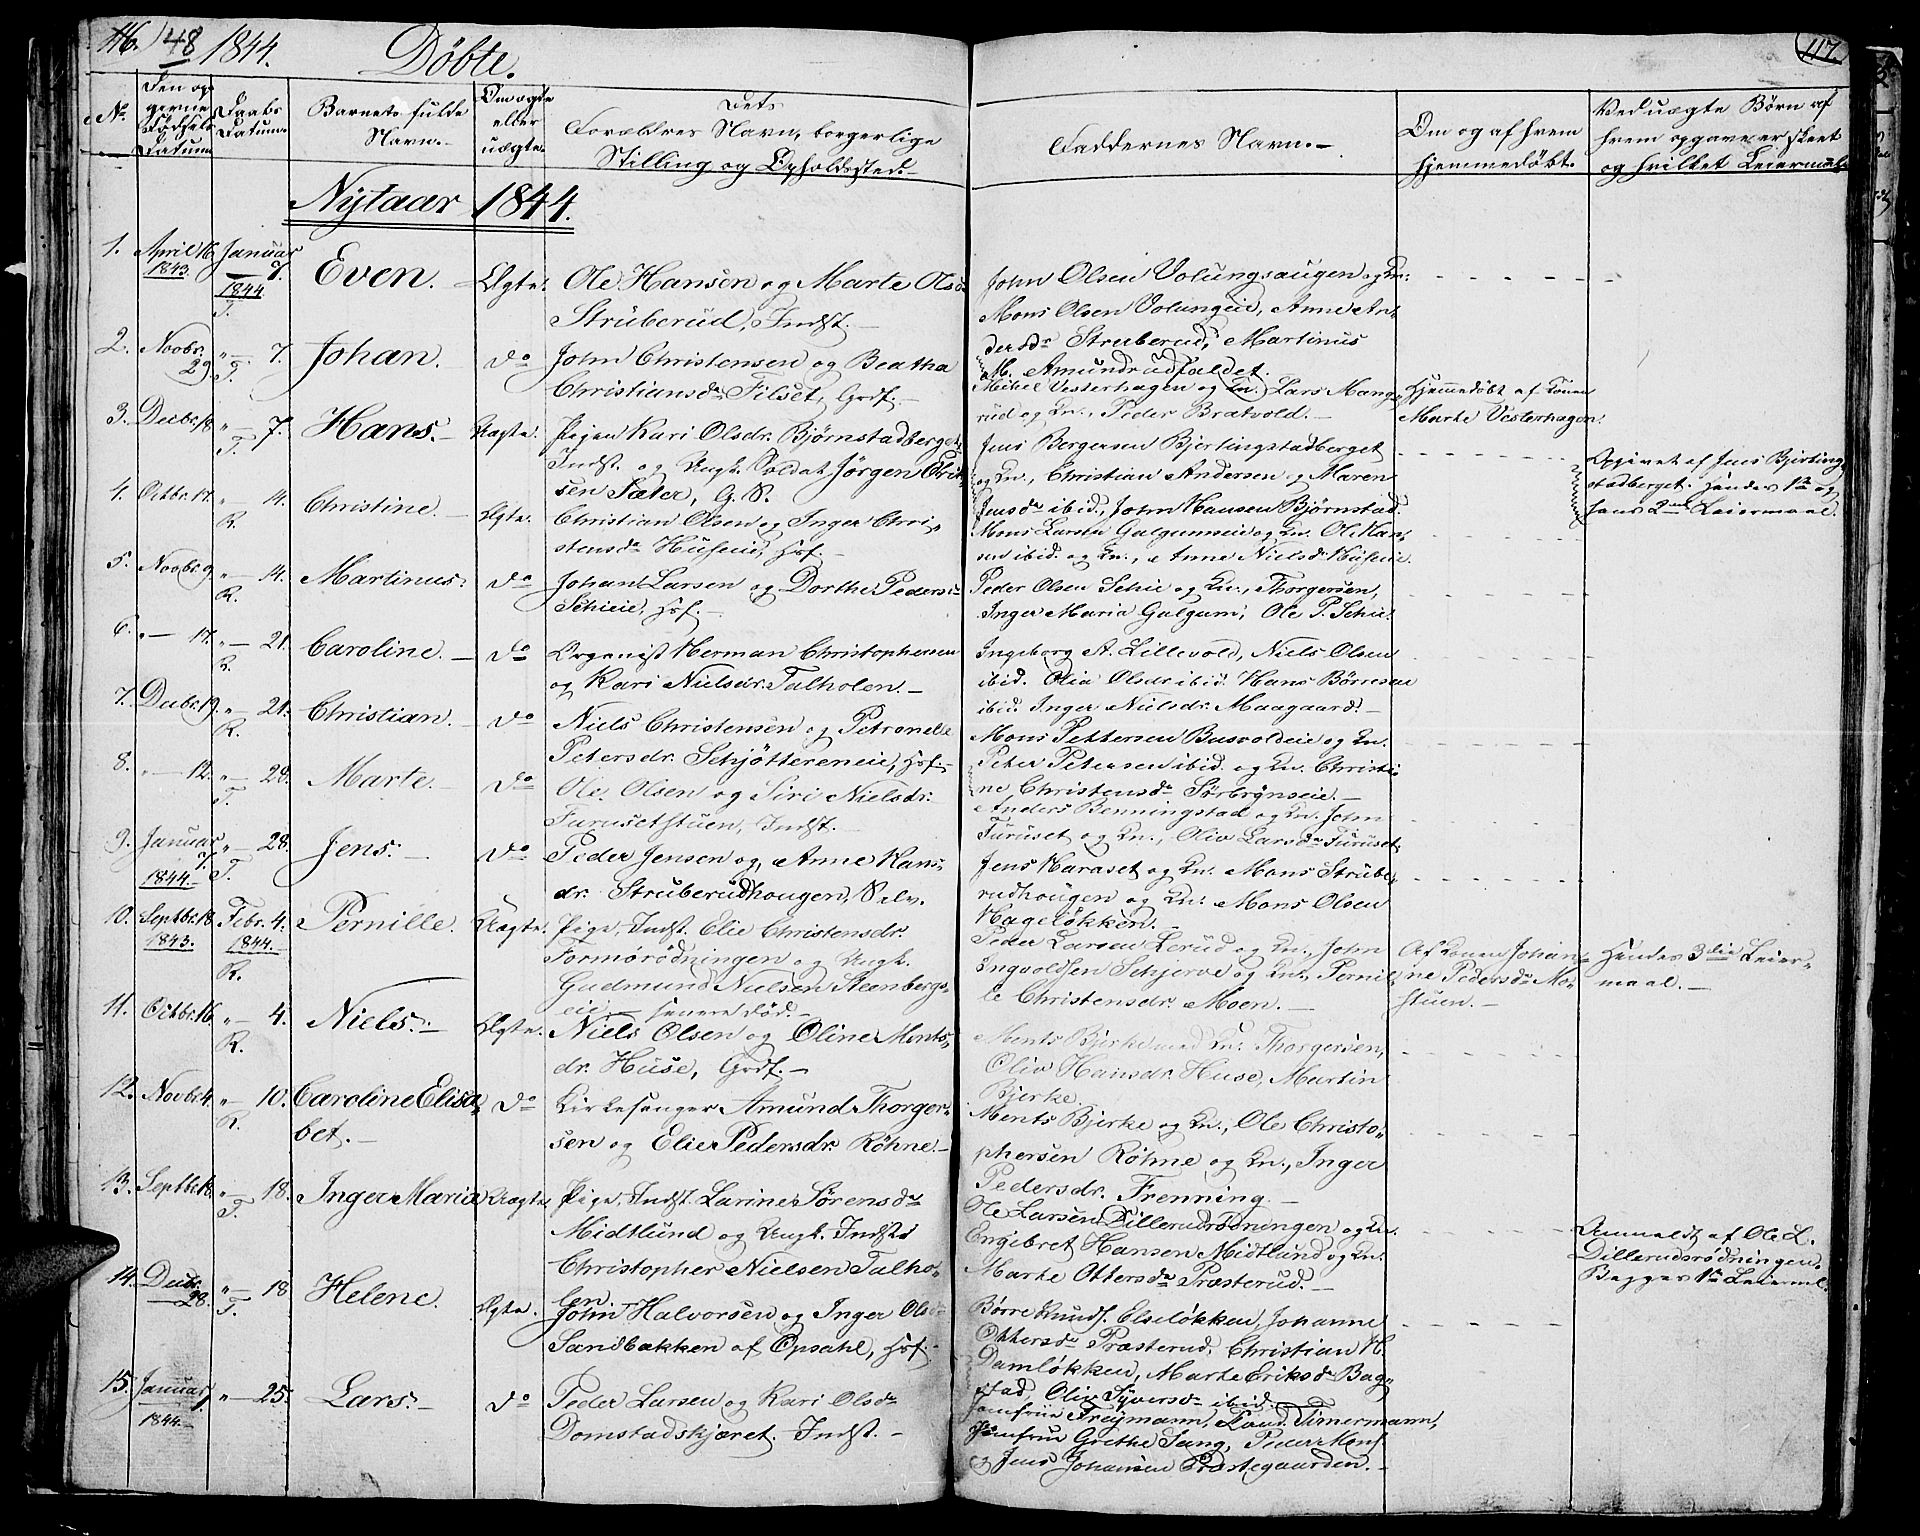 116. 48 1844. Døbte. 117.
No.
Den op-
givne
Fødsels
Datum
Daabs
Datum.
Barnets fulde
Navn.
Om ægte
eller
uægte.
Dets
Forældres Navn, borgerlige
Stilling og Opholdssted.
Faddernes Navn.
Om og af hvem
hjemmedøbt.
Ved uægte Børn af
hvem opgave er skeet
og hvilket Leiermaal
Nytaar 1844.
1. April 16 1843. Januar 7. 1844 T. Even. Ægte.
Ole Hansen og Marte Olsd
Struberud, Indst.
John Olsen Volungsaugen og Kn:
Mons Olsen Volungeie, Anne An-
dersdr Struberud, Martinus
M. Amundrudfaldet.
2. Novbr. 29 " 7. T. Johan. do
John Christensen og Beatha
Christiansdr Filset, Grdf.
Mikel Vesterhagen og Kn. Lars Mang
rud og Kn., Peder Bratvold.
Hjemmedøbt af Konen
Marte Vesterhagen.
3. Decbr. 18 " 7. T. Hans. Uægte.
Pigen Kari Olsdr. Bjørnstadberget
Indst. og Ungk. Soldat Jørgen Chri
sen Sæter, G. S.
Jens Bergersen Bjertingstadberget
og Kn., Christian Andersen og Maren
Jensdr ibid., John Hansen Bjørnstad
Opgivet af Jens Bjerting
stadberget. Hendes 1te og
hans 2det Leiermaal.
4. Octbr. 17. " 14. R. Christine. Ægte.
Christian Olsen og Inger Chri-
stensdr Huseie, Hsf.
Mons Larsen Galgumseie og Kn. Ole Han-
sen ibid. og Kn., Anne Nielsdr. Huseie
5. Novbr. 9. " 14. R. Martinus. do
Johan Larsen og Dorthe Pedersdr
Schieie, Hsf.
Peder Olsen Schie og Kn., Thorgersen,
Inger Maria Galgum, Ole P. Schie.
6. " 17. " 21. R. Caroline. do
Organist Herman Christophersen
og Kari Nielsdr. Talholen.
Ingeborg A. Lillevold, Niels Olsen
ibid. Olia Olsdr ibid. Hans Børresen
ibid. Inger Nielsdr. Maagaard.
7. Decbr. 19. " 21. R. Christian. do
Niels Christensen og Petronelle
Petersdr. Schjøttereneie, Hsf.
Mons Pettersen Busvoldeie og Kn.
Peter Petersen ibid. og Kn. Christi-
ne Christensdr Sørbrynseie.
8. " 12. " 28. T. Marte. do
Ole Olsen og Siri Nielsdr.
Furusetstuen, Indst.
Anders Benningstad og Kn. John
Furuset og Kn., Oliv Larsdr Furuset
9. Januar 7. 1844. " 28. T. Jens. do
Peder Jensen og Anne Hans-
dr. Struberudhougen, Selv.
Jens Haraset og Kn. Mons Strube-
rudhougen og Kn. Mons Olsen
Hageløkken.
10. Septbr. 18 1843. Febr. 4. 1844. R. Pernille. Uægte.
Pige, Indst. Elie Christensdr.
Formørødningen og Ungk.
Gudmund Nielsen Steenbergs-
eie - senere død.
Peder Larsen Lerud og Kn., John
Ingvoldsen Schjerve og Kn., Pernil-
le Christensdr. Moen.
Af Konen Johan-
ne Pedersdr Mo-
stuen.
Hendes 3die Leier-
maal.
11. Octbr. 16. " 4. R. Niels. Ægte.
Niels Olsen og Oline Ments-
dr. Huse, Grdf.
Ments Bjerke med Kn. Thorgersen,
Oliv Hansdr. Huse, Martin
Bjerke.
12. Novbr. 4. " 10. R. Caroline Elisa-
bet. do
Kirkesanger Amund Thorger-
sen og Elie Pedersdr. Røhne.
Ments Bjerke og Kn., Ole Christo-
phersen Røhne og Kn., Inger
Pedersdr. Frenning.
13. Septbr. 18. " 18. T. Inger Maria Uægte.
Pige, Indst. Larine Sørensdr
Midtlund og Ungk. Indst:
Christopher Nielsen Talho-
len.
Ole Larsen Dillerudrødningen og Kn.
Engibret Hansen Midtlund og Kn.
Marte Ottersdr Præsterud.
Anmeldt af Ole L.
Dillerudsrødningen.
Begges 1te Leierml.
14. Decbr. 28. " 18 T. Helene. Ægte.
John Halvorsen og Inger Olsdr
Sandbakken af Opsahl, Hsf.
Børre Knuds. Elseløkken, Johanne
Ottersdr Præsterud, Christian H.
Damløkken, Marte Eriksdr Bag-
stad, Oliv Syversdr ibid.
15. Januar 1 1844. " 25. Lars. do
Peder Larsen og Kari Olsdr
Domstadskjæret. Indst.
Jomfrue Freymann, Timermann,
Jomfrue Grethe Sang, Peder Mons.
og Jens Johansen Præstegaarden.